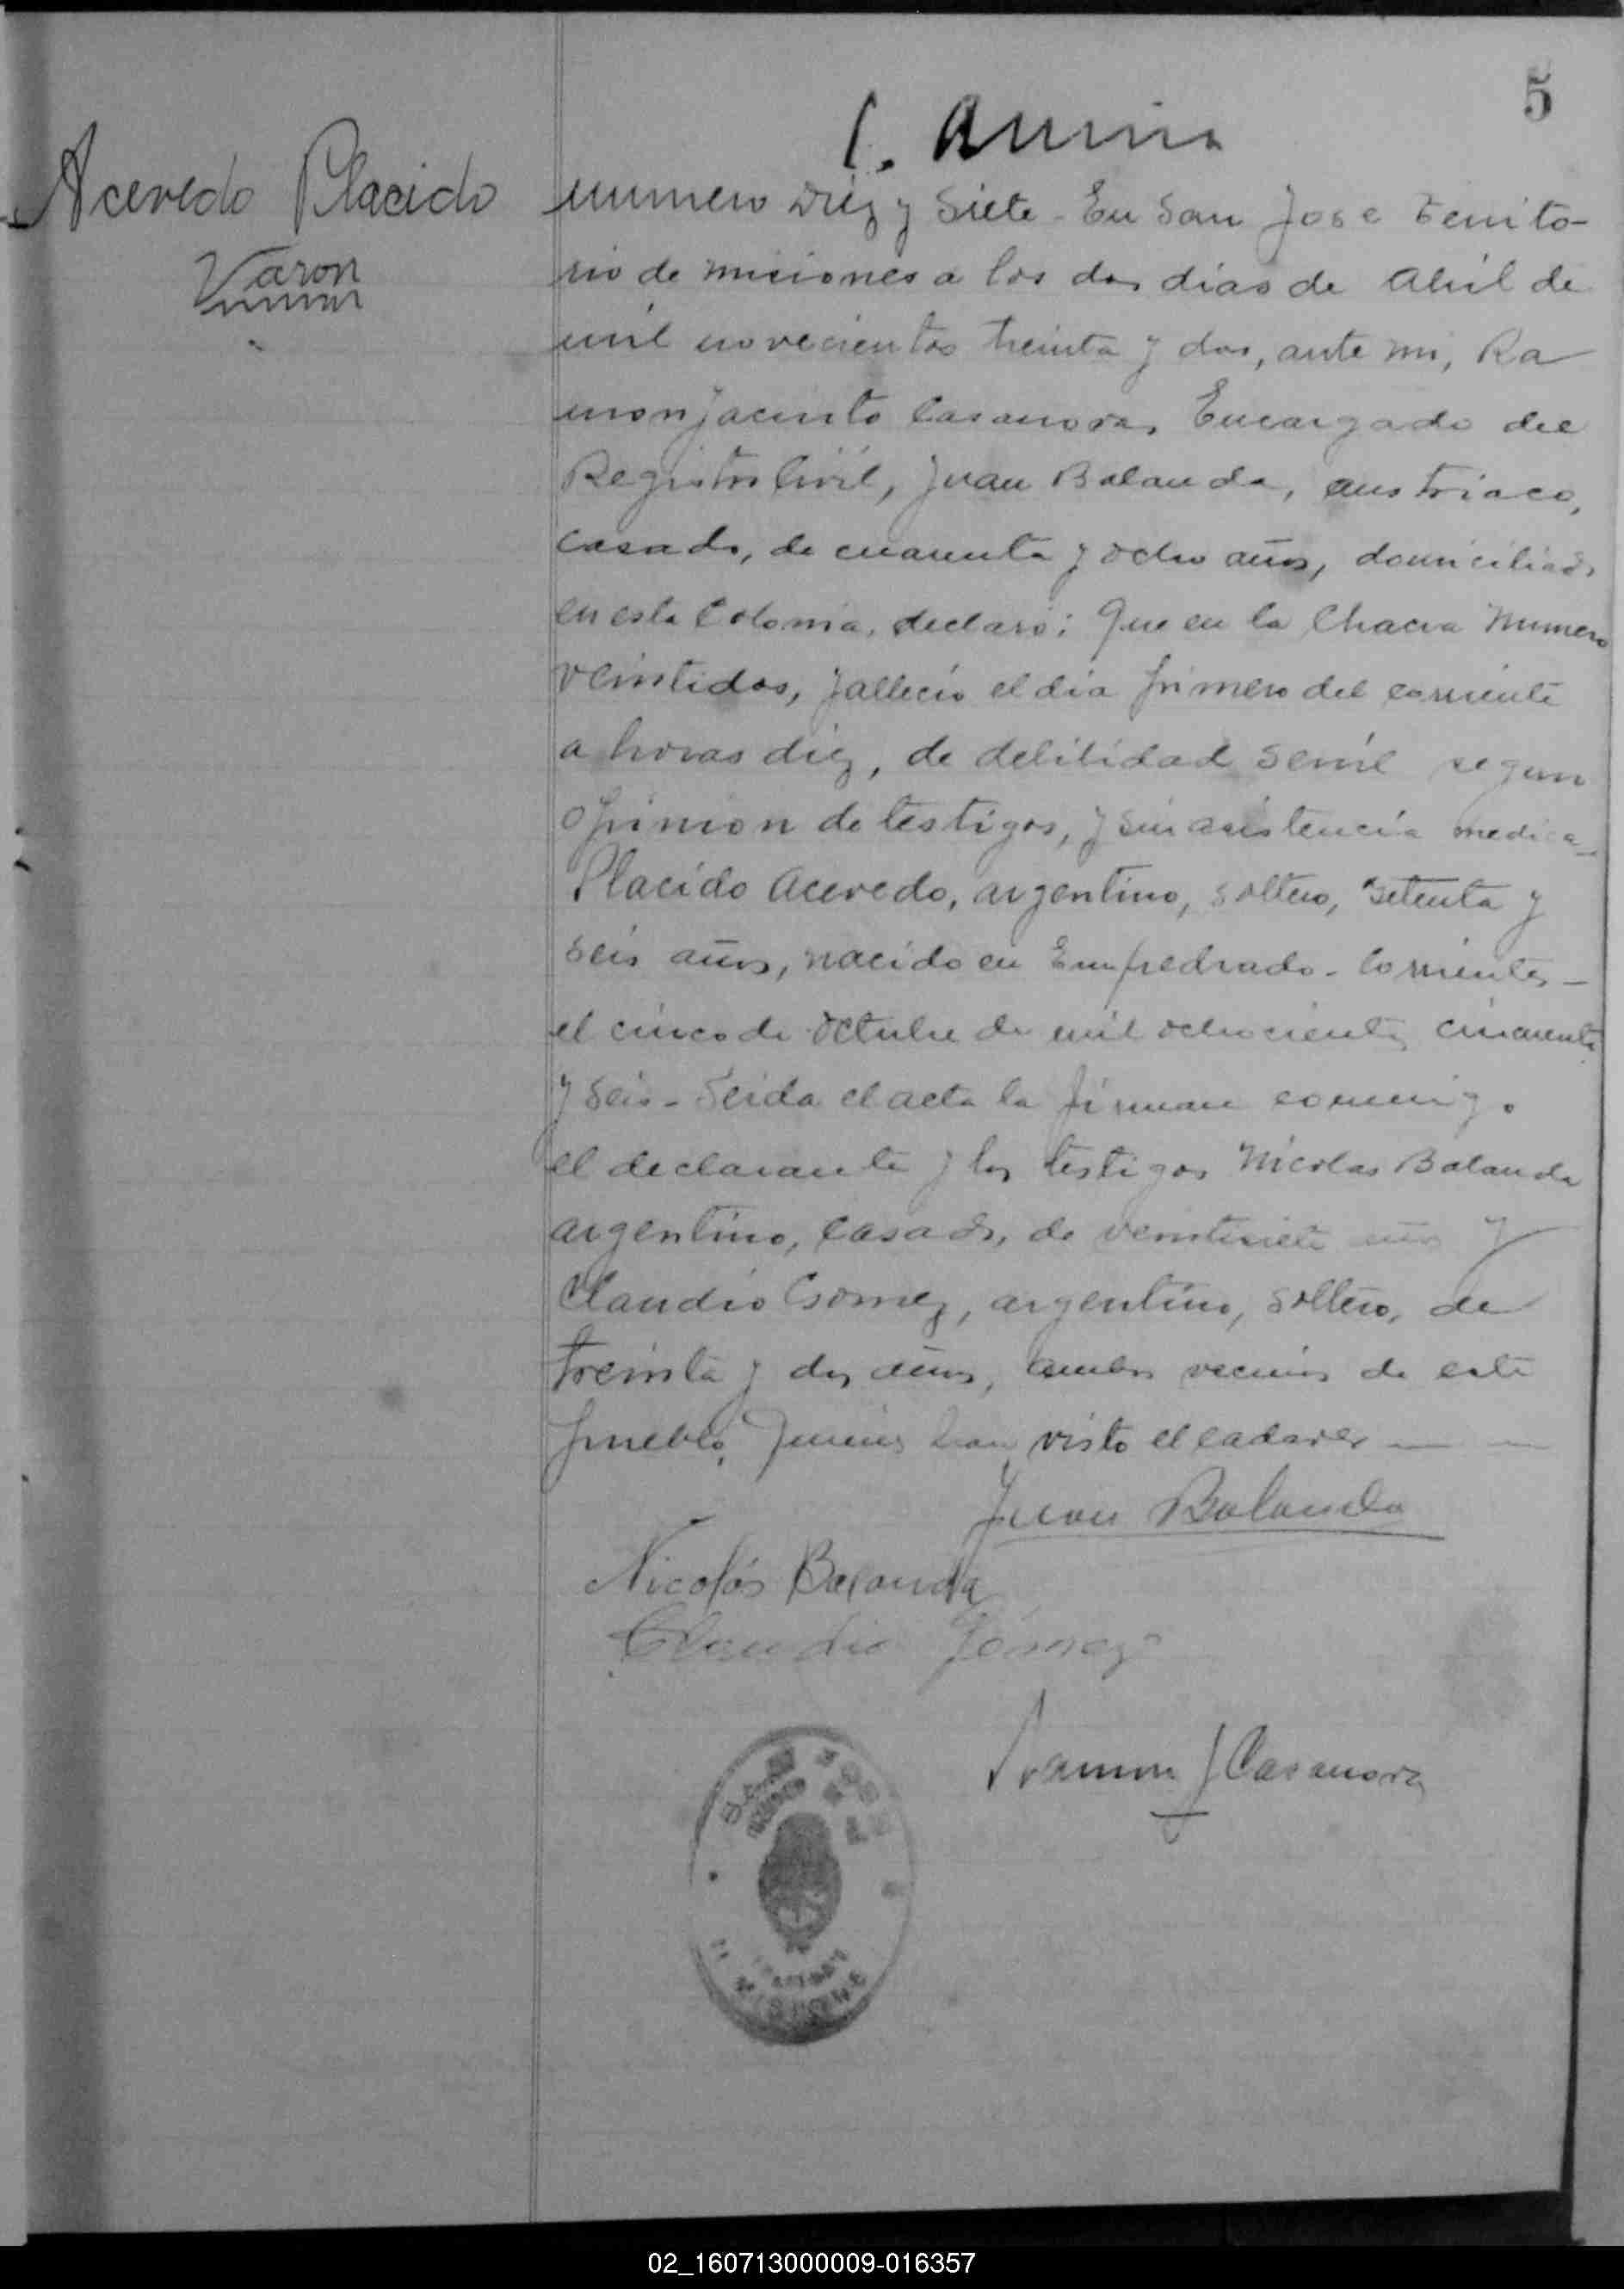 5
Acevedo Placido
Varon
numero Diez y Siete - En San Jose Territo-
rio de misiones a los dos dias de Abril de
mil novecientos treinta y dos, ante mi, Ra
mon Jacinto Casanova, Encargado del
Registro Civil, Juan Balanda, austriaco,
casado, de cuarenta y ocho años, domiciliado
en esta Colonia, declaró: Que en la Chacra Numero
veintidos, falleció el dia primero del corriente
a horas diez, de debilidad senil segun
opinion de testigos, y sin asistencia medica-
Placido Acevedo, argentino, soltero, setenta y
seis años, nacido en Empedrado - Corrientes -
el cinco de octubre de mil ochocientos cincuenta
y seis - Leida el acta la firman conmigo
el declarante y los testigos Nicolas Balanda
argentino, casado, de veintisiete años y
Claudio Gomez, argentino, soltero, de
treinta y dos años, ambos vecinos de este
pueblo, quienes han visto el cadaver
Juan Balanda
Nicolás Balanda
Claudio Gómez
Ramon J Casanova
SAN JOSE
MISIONES
02_160713000009-016357